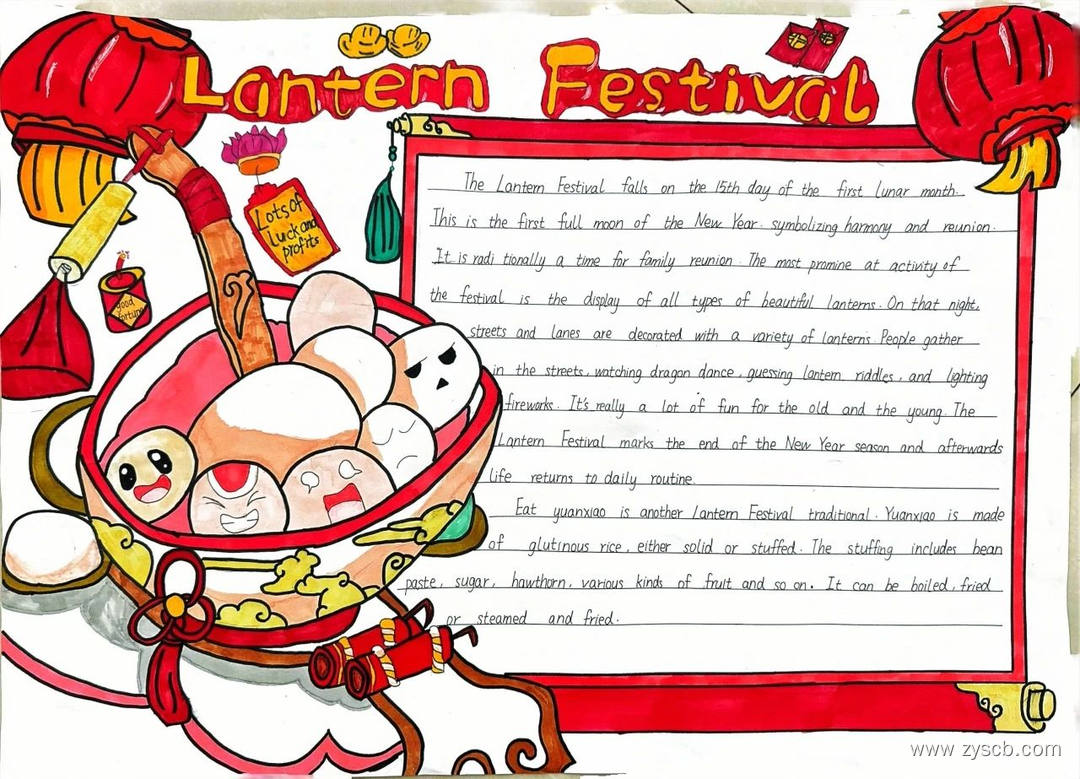 Lantern Festival
Lots of
luck and
profits
good
fortune
The Lantern Festival falls on the 15th day of the first lunar month.
This is the first full moon of the New Year. symbolizing harmony and reunion.
It is radi tionally a time for family reunion. The most promine at activity of
the festival is the display of all types of beautiful lanterns. On that night,
streets and lanes are decorated with a variety of lanterns. People gather
in the streets, watching dragon dance, guessing lantern riddles, and lighting
fireworks. It's really a lot of fun for the old and the young. The
Lantern Festival marks the end of the New Year season and afterwards
life returns to daily routine.
Eat yuanxiao is another Lantern Festival traditional. Yuanxiao is made
of glutinous rice, either solid or stuffed. The stuffing includes bean
paste, sugar, hawthorn, various kinds of fruit and so on. It can be boiled, fried
or steamed and fried.
www.zyscb.com